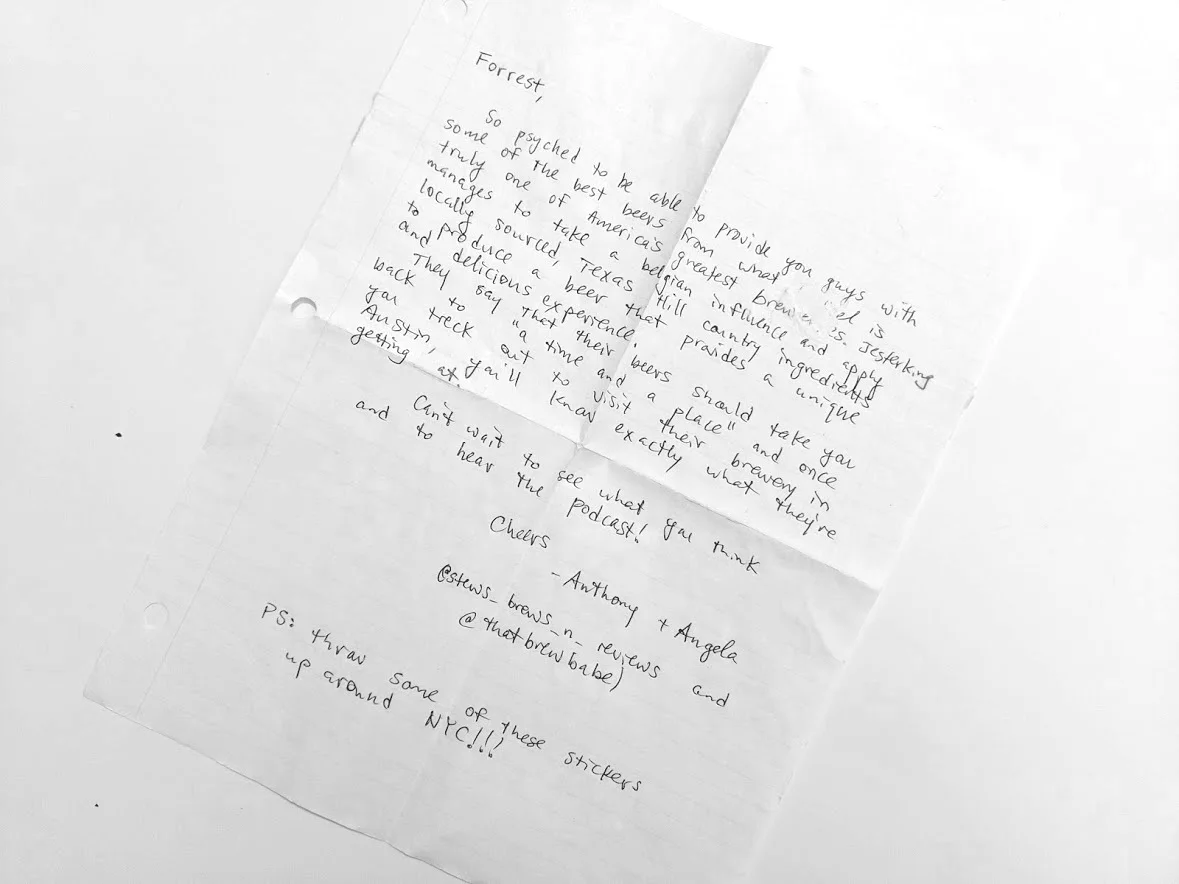 Forrest,
So psyched to be able to provide you guys with
some of the best beers from what I feel is
truly one of America's greatest breweries. Jesterking
manages to take a belgian influence and apply
locally sourced, Texas Hill country ingredients
to produce a beer that provides a unique
and delicious experience.
They say that their beers should take you
back to "a time and a place" and once
you treck out to visit their brewery in
Austin, you'll know exactly what they're
getting at.
Can't wait to see what you think
and to hear the podcast!
Cheers
- Anthony + Angela
@stews_brews_n_reviews and
@thatbrewbabe)
PS: throw some of these stickers
up around NYC!!!